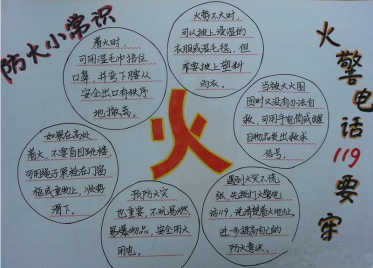 防火小常识
着火时，
可用湿毛巾捂住
口鼻，并弯下腰从
安全出口有秩序
地撤离。
火势不大时，
可以披上浸湿的
衣服或湿毛毯，但
千万不要披上塑料
雨衣。
当被大火围
困时又没有办法自
救，可用手电筒或醒
目物品发出求救
信号。
火
如果在高处
着火，不要盲目跳楼，
可用绳子紧拴在门窗
框或重物上，顺势
滑下。
预防火灾
也重要，不玩易燃
易爆物品，安全用火
用电。
遇到火灾不慌
张，先拨打火警电
话119，说清楚着火地址。
进步提高自己的
防火意识。
火警电话119要牢